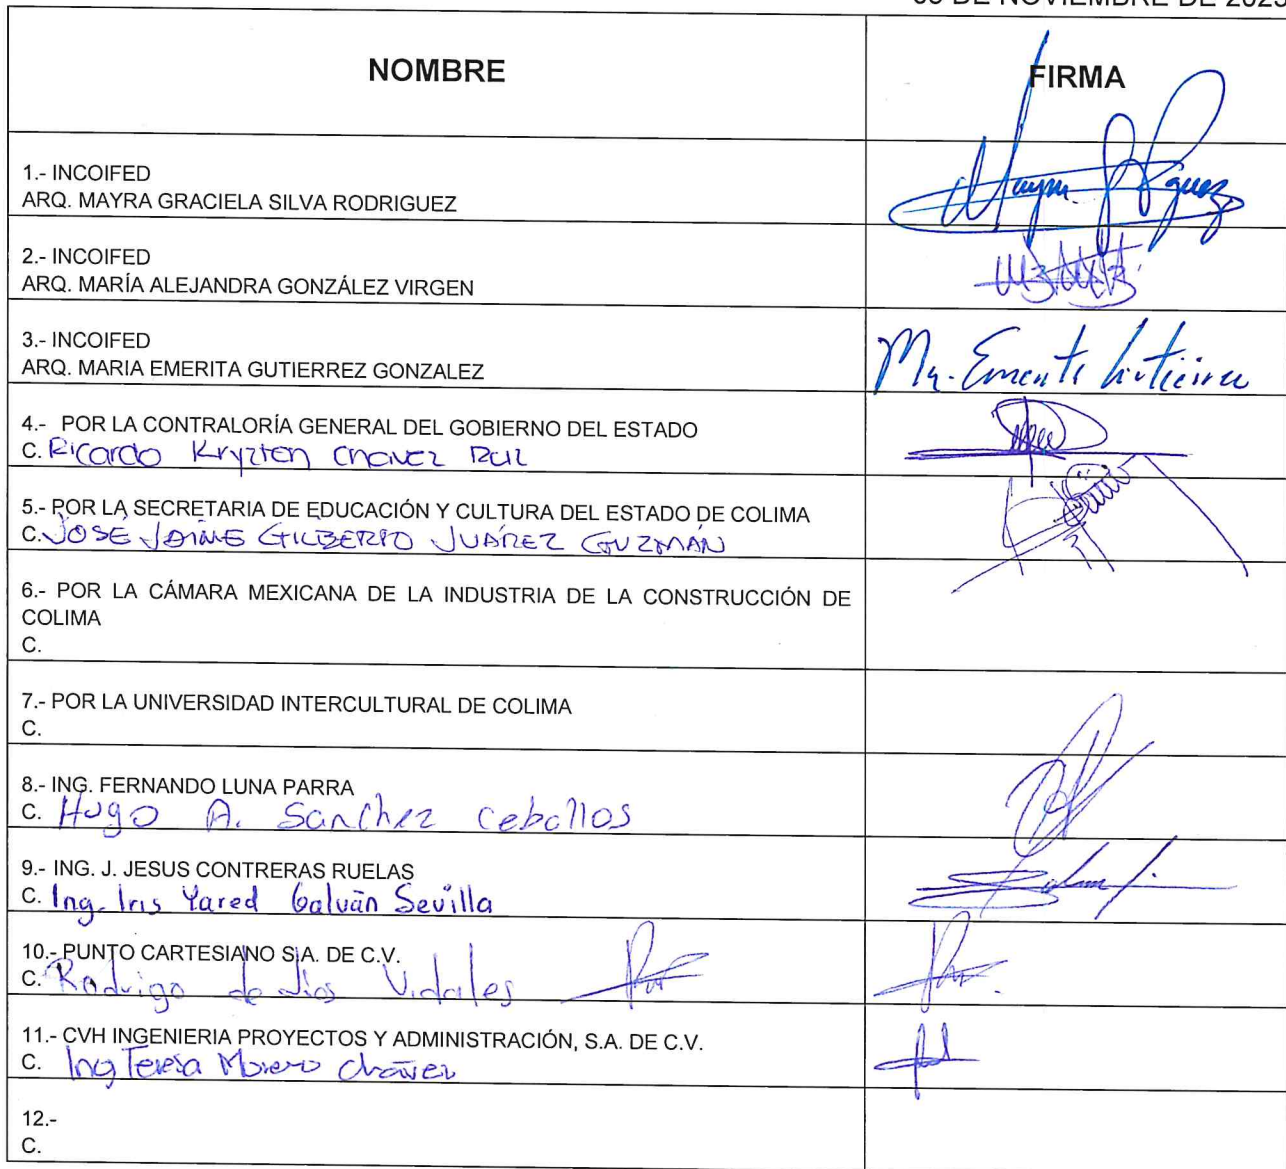 DE NOVIEMBRE DE 2023
NOMBRE
FIRMA
1.- INCOIFED
ARQ. MAYRA GRACIELA SILVA RODRIGUEZ
2.- INCOIFED
ARQ. MARÍA ALEJANDRA GONZÁLEZ VIRGEN
3.- INCOIFED
ARQ. MARIA EMERITA GUTIERREZ GONZALEZ
Ma. Emerita Gutiérrez
4.- POR LA CONTRALORÍA GENERAL DEL GOBIERNO DEL ESTADO
C. Ricardo Kryzten Chavez Ruiz
5.- POR LA SECRETARIA DE EDUCACIÓN Y CULTURA DEL ESTADO DE COLIMA
C. JOSÉ JAIME GILBERTO JUÁREZ GUZMÁN
6.- POR LA CÁMARA MEXICANA DE LA INDUSTRIA DE LA CONSTRUCCIÓN DE
COLIMA
C.
7.- POR LA UNIVERSIDAD INTERCULTURAL DE COLIMA
C.
8.- ING. FERNANDO LUNA PARRA
C. Hugo A. Sanchez Ceballos
9.- ING. J. JESUS CONTRERAS RUELAS
C. Ing. Iris Yared Galván Sevilla
10.- PUNTO CARTESIANO S.A. DE C.V.
C. Rodrigo de Dios Vidales
11.- CVH INGENIERIA PROYECTOS Y ADMINISTRACIÓN, S.A. DE C.V.
C. Ing Teresa Moreno Chávez
12.-
C.